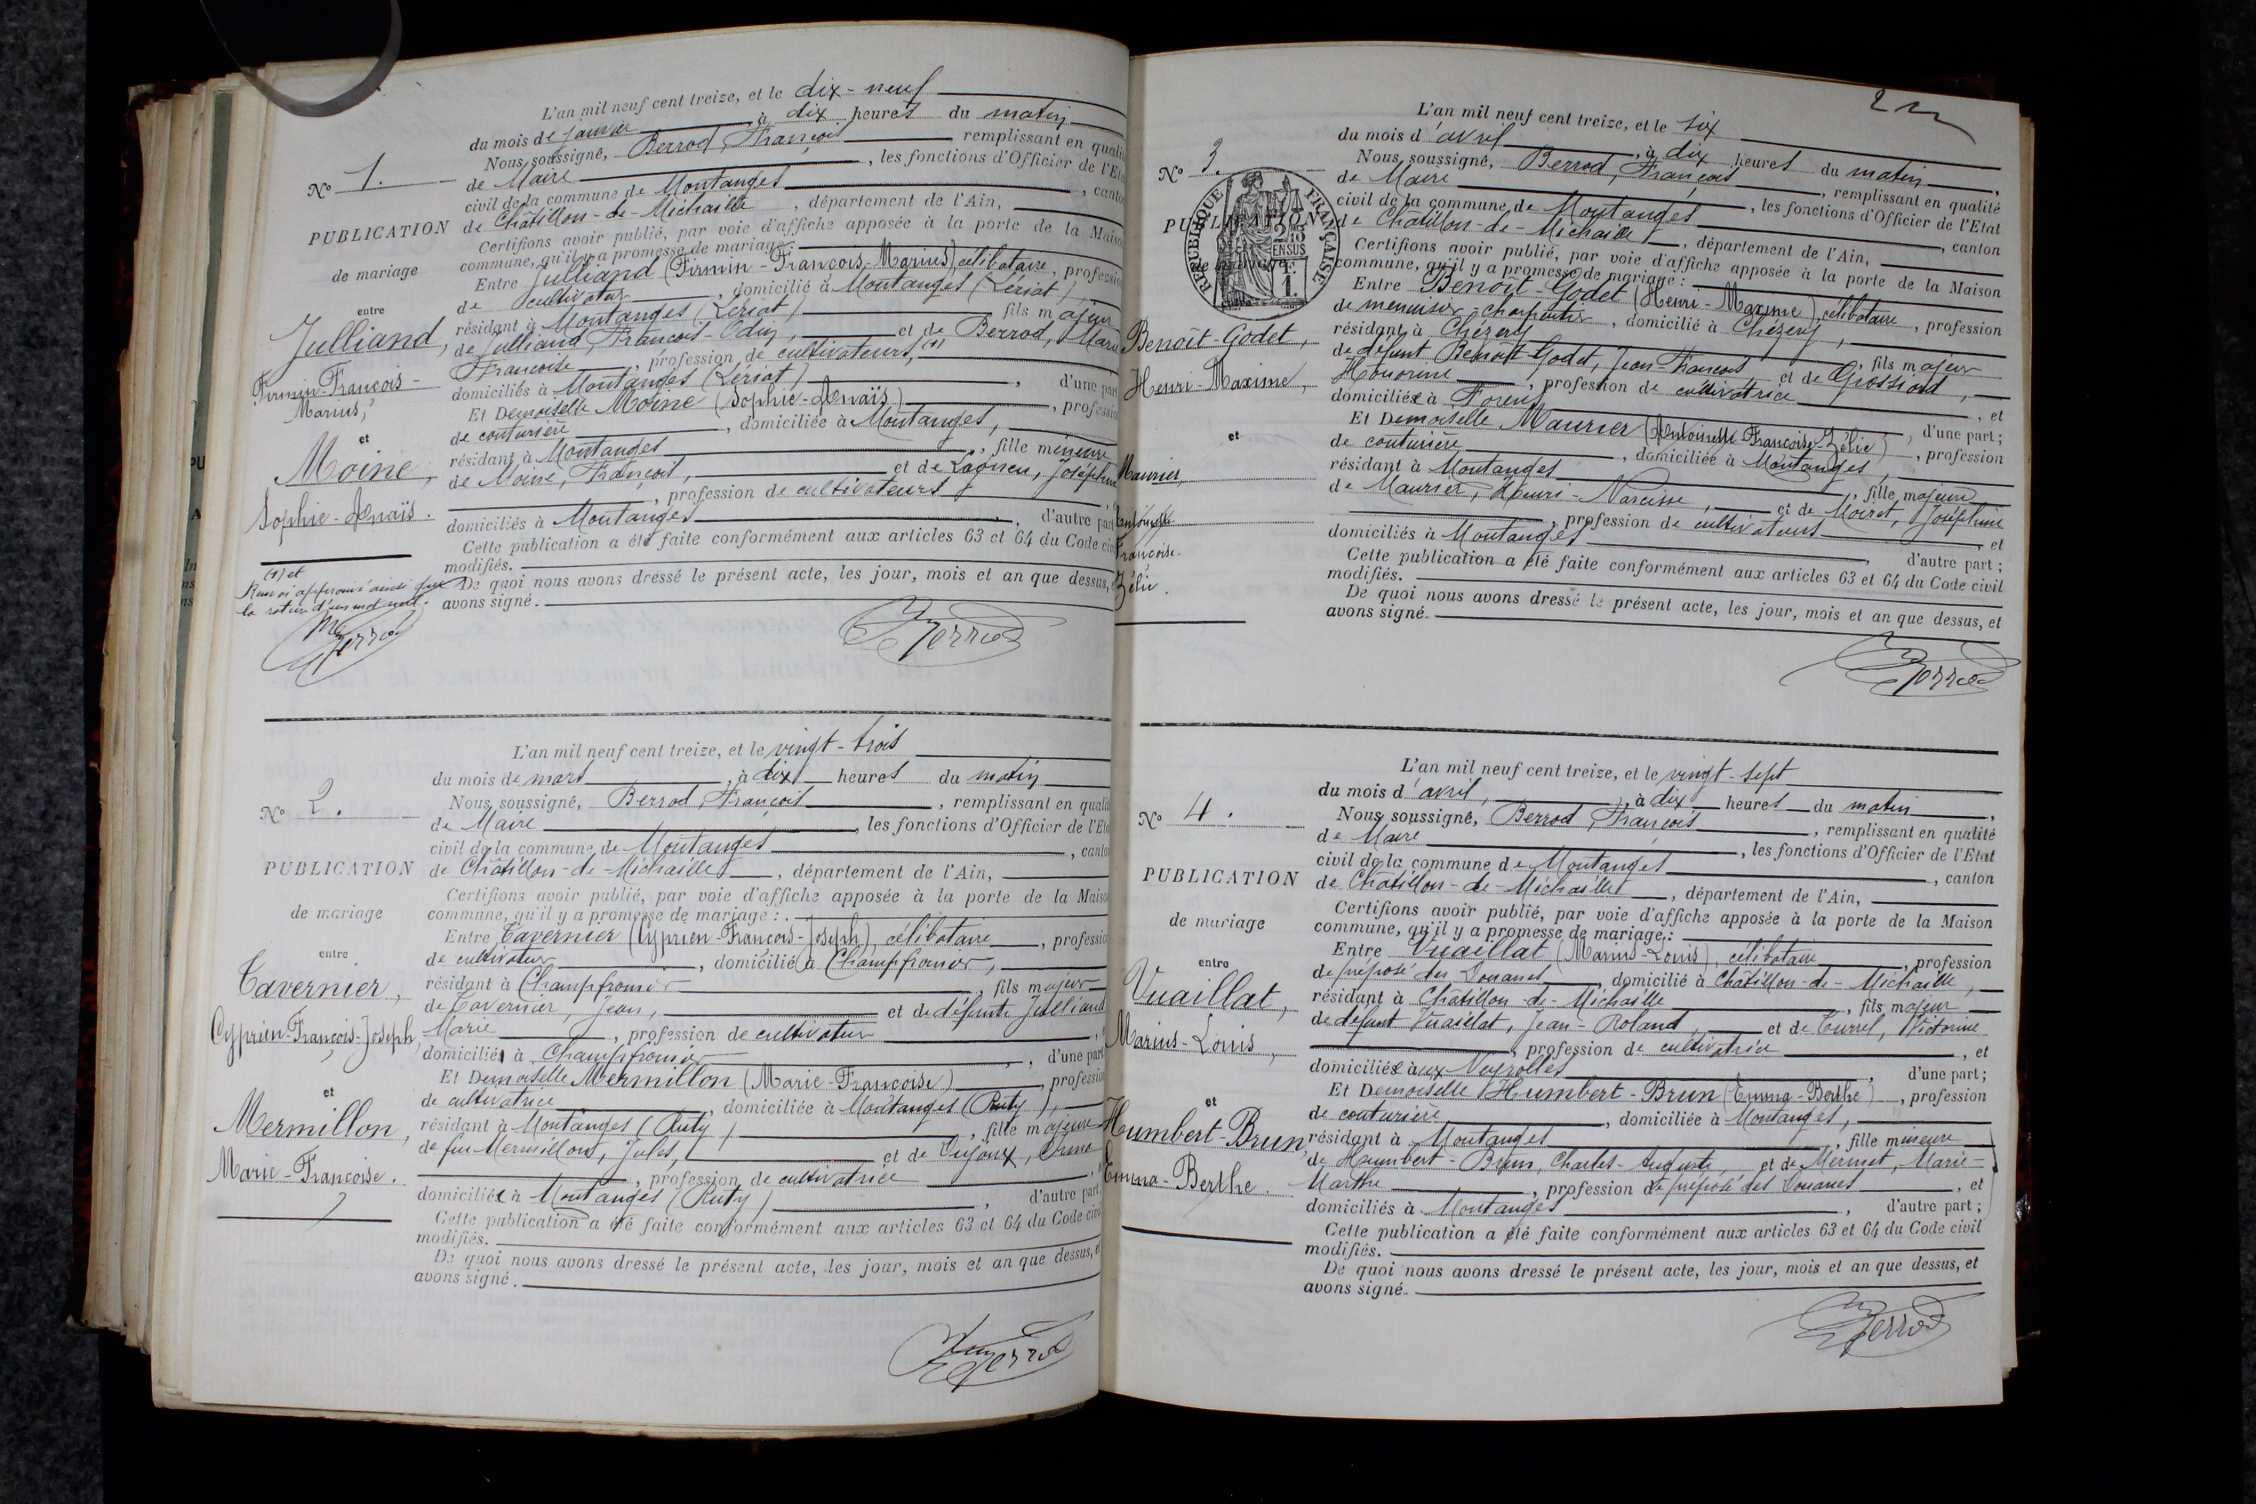 L'an mil neuf cent treize, et le dix-neuf
du mois de janvier, à dix heures du matin
Nous soussigné, Berrod, François remplissant en qualit
de Maire, les fonctions d'Officier de l'Eta
civil de la commune de Montanges, canto
de Châtillon-de-Michaille, département de l'Ain,
Certifions avoir publié, par voie d'affiche apposée à la porte de la Maiso
commune, qu'il y a promesse de mariage:
Entre Julliand (Firmin-François-Marius), célibataire, professio
de cultivateur, domicilié à Montanges (Lériat),
résidant à Montanges (Lériat) fils majeur
de Julliand, François-, et de Berrod, Marie
Françoise, profession de cultivateurs, (1)
domiciliés à Montanges (Lériat), d'une part
Et Demoiselle Moine (Sophie-Anaïs), professio
de couturière, domiciliée à Montanges,
résidant à Montanges, fille mineure
de Moine, François, et de Lagneu, Joséphine
, profession de cultivateurs
domiciliés à Montanges, d'autre part
Cette publication a été faite conformément aux articles 63 et 64 du Code civ
modifiés.
De quoi nous avons dressé le présent acte, les jour, mois et an que dessus, e
avons signé.
Berrod
No 1.
PUBLICATION
de mariage
entre
Julliand,
Firmin-François-
Marius,
et
Moine,
Sophie-Anaïs.
(1) et
Renvoi approuvé ainsi que
la rature d'un mot nul.
Berrod
L'an mil neuf cent treize, et le vingt-trois
du mois de mars, à dix heures du matin
Nous soussigné, Berrod, François, remplissant en qualit
de Maire, les fonctions d'Officier de l'Eta
civil de la commune de Montanges, canto
de Châtillon-de-Michaille, département de l'Ain,
Certifions avoir publié, par voie d'affiche apposée à la porte de la Maiso
commune, qu'il y a promesse de mariage:
Entre Tavernier (Cyprien-François-Joseph), célibataire, professio
de cultivateur, domicilié à Champfromier,
résidant à Champfromier, fils majeur
de Tavernier, Jean, et de défunte Julliand
Marie, profession de cultivateur
domicilié à Champfromier, d'une part
Et Demoiselle Mermillon (Marie-Françoise), professio
de cultivatrice, domiciliée à Montanges (Ruty),
résidant à Montanges (Ruty), fille majeure
de feu Mermillon, Jules, et de Dujoux, Irma
, profession de cultivatrice
domiciliée à Montanges (Ruty), d'autre part
Cette publication a été faite conformément aux articles 63 et 64 du Code civi
modifiés.
De quoi nous avons dressé le présent acte, les jour, mois et an que dessus, e
avons signé.
Berrod
No 2.
PUBLICATION
de mariage
entre
Tavernier,
Cyprien-François-Joseph,
et
Mermillon,
Marie-Françoise.
L'an mil neuf cent treize, et le six
du mois d'avril, à dix heures du matin,
Nous soussigné, Berrod, François, remplissant en qualité
de Maire, les fonctions d'Officier de l'Etat
civil de la commune de Montanges, canton
de Châtillon-de-Michaille, département de l'Ain,
Certifions avoir publié, par voie d'affiche apposée à la porte de la Maison
commune, qu'il y a promesse de mariage:
Entre Benoît-Godet (Henri-Maxime), célibataire, profession
de menuisier-charpentier, domicilié à Chézery,
résidant à Chézery, fils majeur
de défunt Benoît-Godet, Jean-François, et de Grossiord,
Honorine, profession de cultivatrice, et
domiciliée à Forens, d'une part;
Et Demoiselle Maurier (Antoinette Françoise Zélie), profession
de couturière, domiciliée à Montanges,
résidant à Montanges, fille majeure
de Maurier, Henri-Narcisse, et de Moiret, Joséphine
, profession de cultivateurs, et
domiciliés à Montanges, d'autre part;
Cette publication a été faite conformément aux articles 63 et 64 du Code civil
modifiés.
De quoi nous avons dressé le présent acte, les jour, mois et an que dessus, et
avons signé.
Berrod
No 3.
PUBLICATION
de mariage
RÉPUBLIQUE FRANÇAISE
Benoît-Godet,
Henri-Maxime,
et
Maurier,
Antoinette
Françoise-
Zélie.
L'an mil neuf cent treize, et le vingt-sept
du mois d'avril, à dix heures du matin,
Nous soussigné, Berrod, François, remplissant en qualité
de Maire, les fonctions d'Officier de l'Etat
civil de la commune de Montanges, canton
de Châtillon-de-Michaille, département de l'Ain,
Certifions avoir publié, par voie d'affiche apposée à la porte de la Maison
commune, qu'il y a promesse de mariage:
Entre Vuaillat (Marius-Louis), célibataire, profession
de préposé des Douanes, domicilié à Châtillon-de-Michaille,
résidant à Châtillon-de-Michaille, fils majeur
de défunt Vuaillat, Jean-Roland, et de Turrel, Victorine
, profession de cultivatrice, et
domiciliée aux Neyrolles, d'une part;
Et Demoiselle Humbert-Brun (Emma-Berthe), profession
de couturière, domiciliée à Montanges,
résidant à Montanges, fille mineure
de Humbert-Brun, Charles-Auguste, et de Mermet, Marie-
Marthe, profession de préposé des Douanes, et
domiciliés à Montanges, d'autre part;
Cette publication a été faite conformément aux articles 63 et 64 du Code civil
modifiés.
De quoi nous avons dressé le présent acte, les jour, mois et an que dessus, et
avons signé.
Berrod
No 4.
PUBLICATION
de mariage
entre
Vuaillat,
Marius-Louis,
et
Humbert-Brun,
Emma-Berthe.